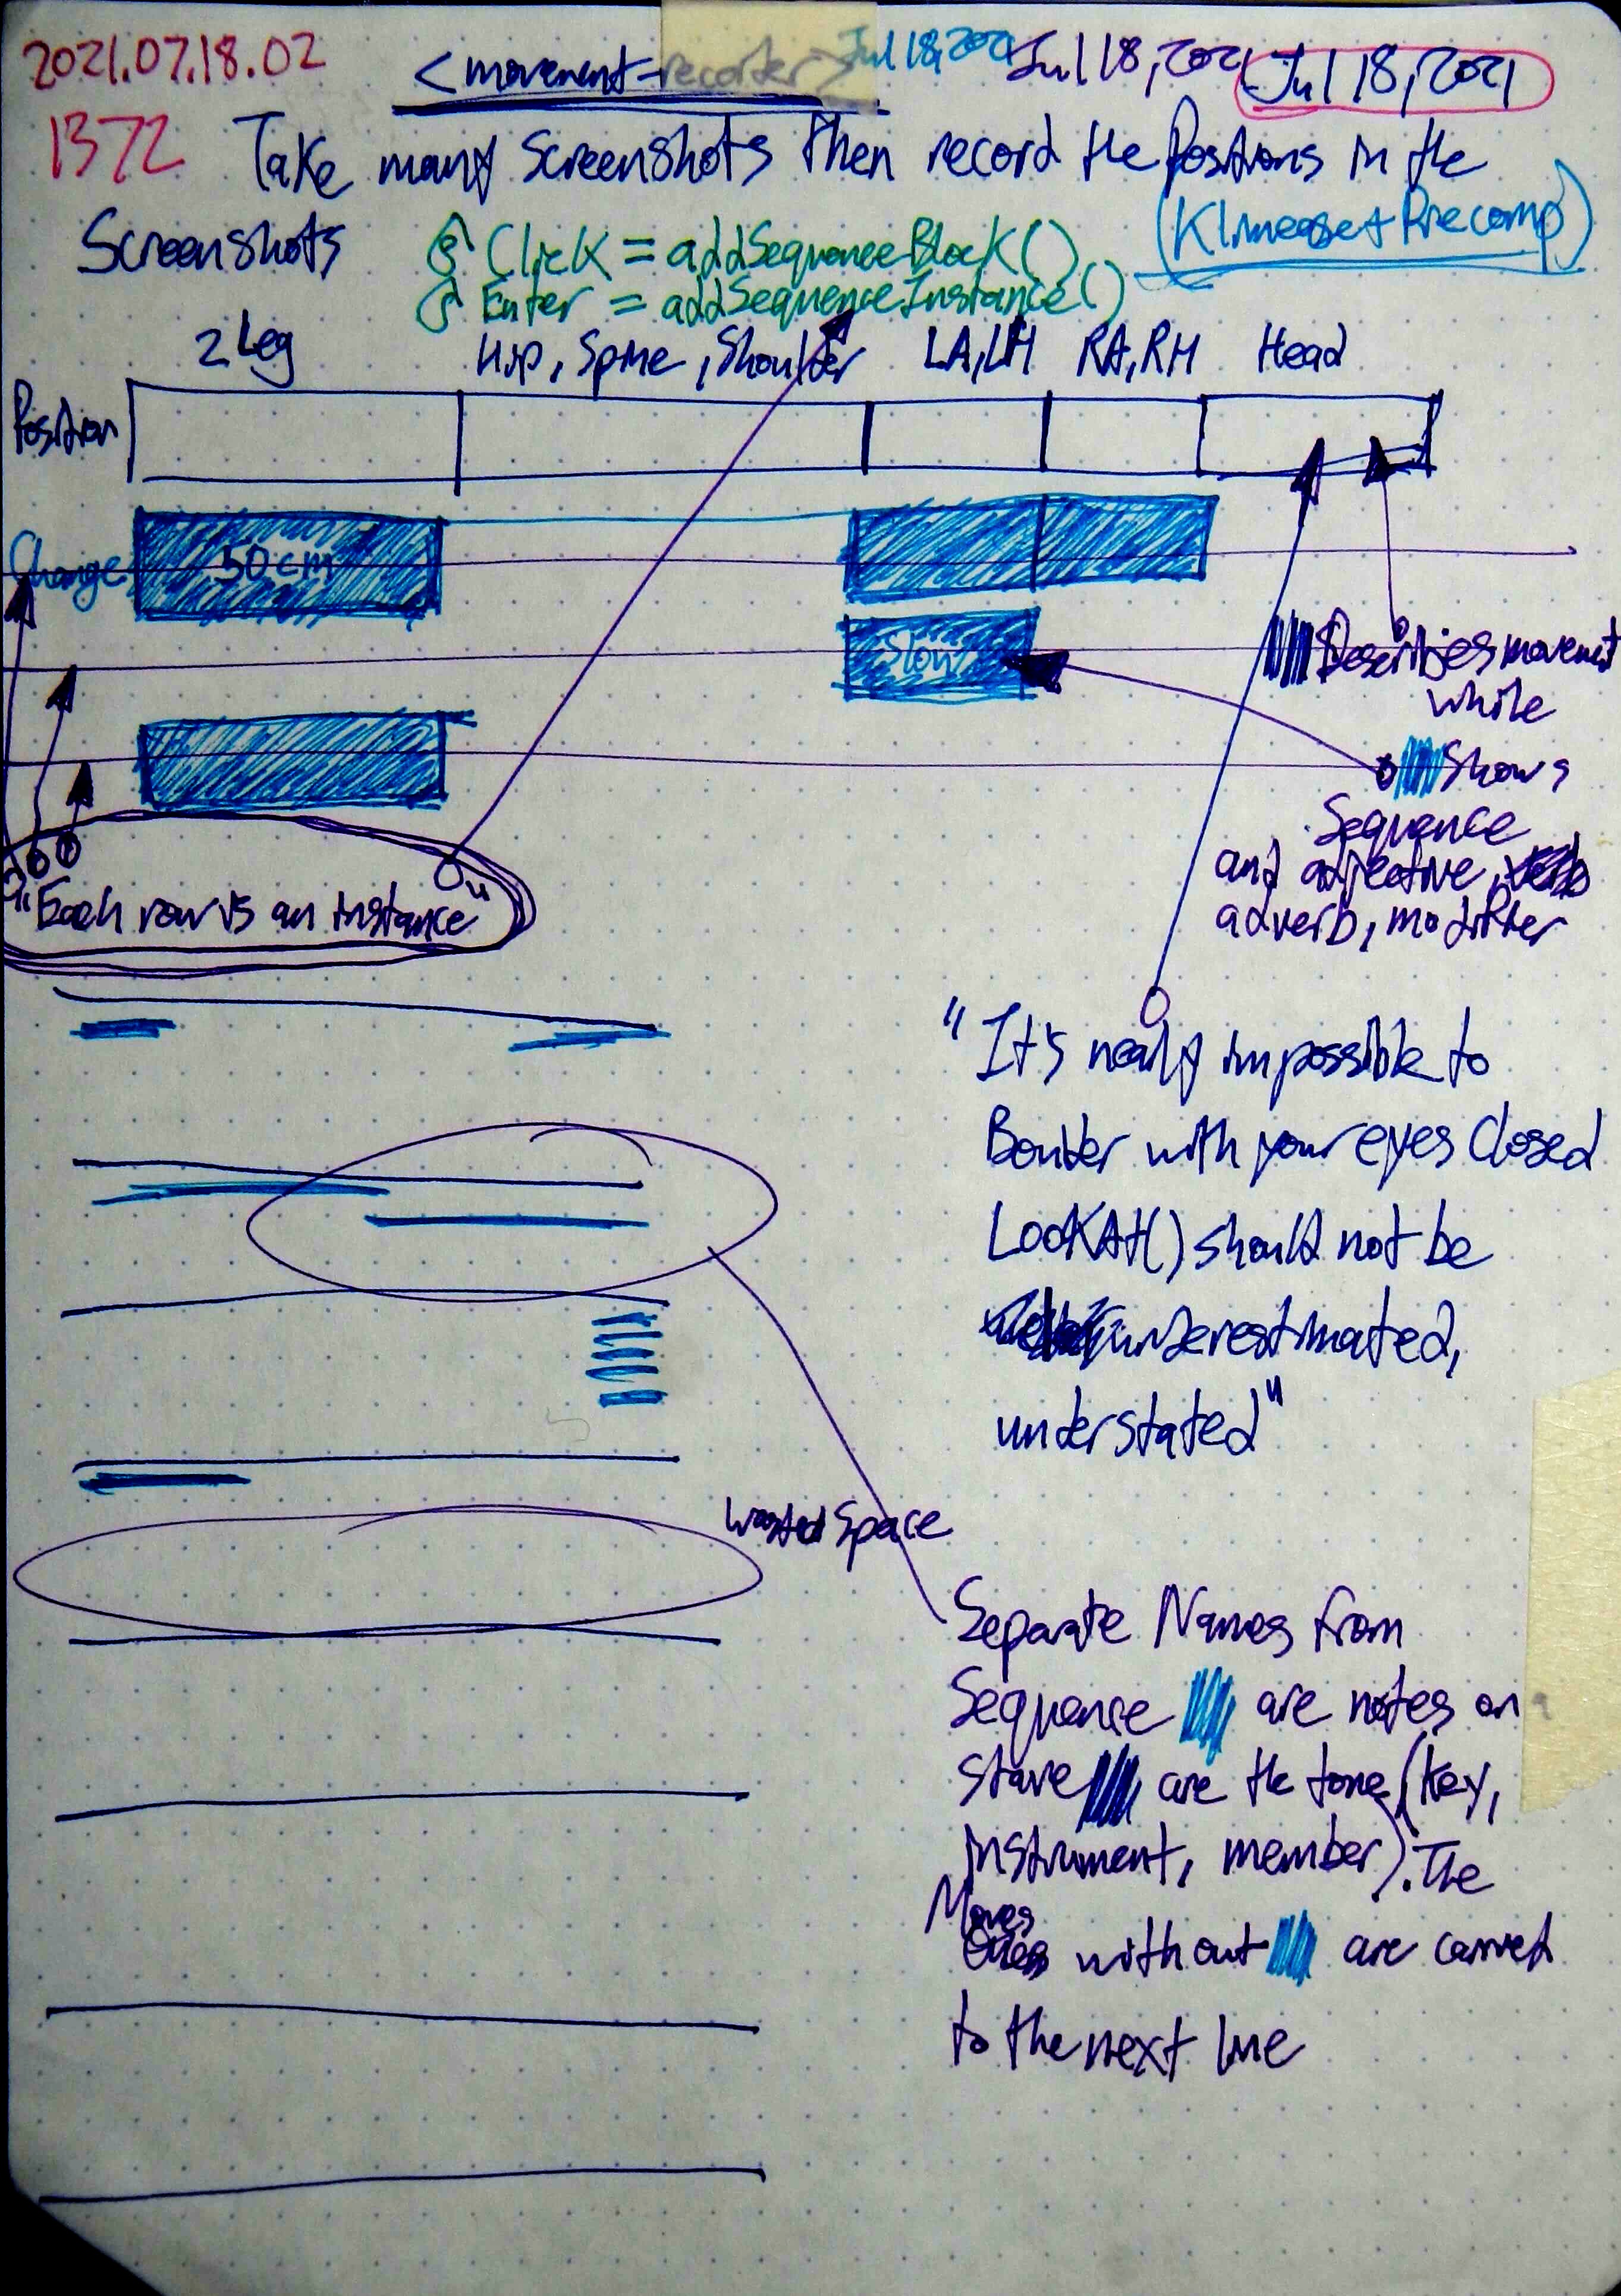 2021.07.18.02
<movement-recorder>
Jul 18, 2021 Jul 18, 2021 Jul 18, 2021
1372
Take many Screenshots Then record the Positions in the
Screenshots
Click = addSequenceBlock()
Enter = addSequenceInstance()
2 Leg
Hip, Spine, Shoulder
LA, LH
RA, RH
Head
Position
Change
50cm
Slow
Describes movement
while
Shows
Sequence
and adjective,
adverb, modifier
"Each row is an instance"
"It's nearly impossible to
Boulder with your eyes Closed
LookAt() should not be
underestimated,
understated"
Wasted Space
Separate Names from
Sequence are notes on a
stave are the tone (key,
instrument, member). The
Moves
Ones without are carried
to the next line